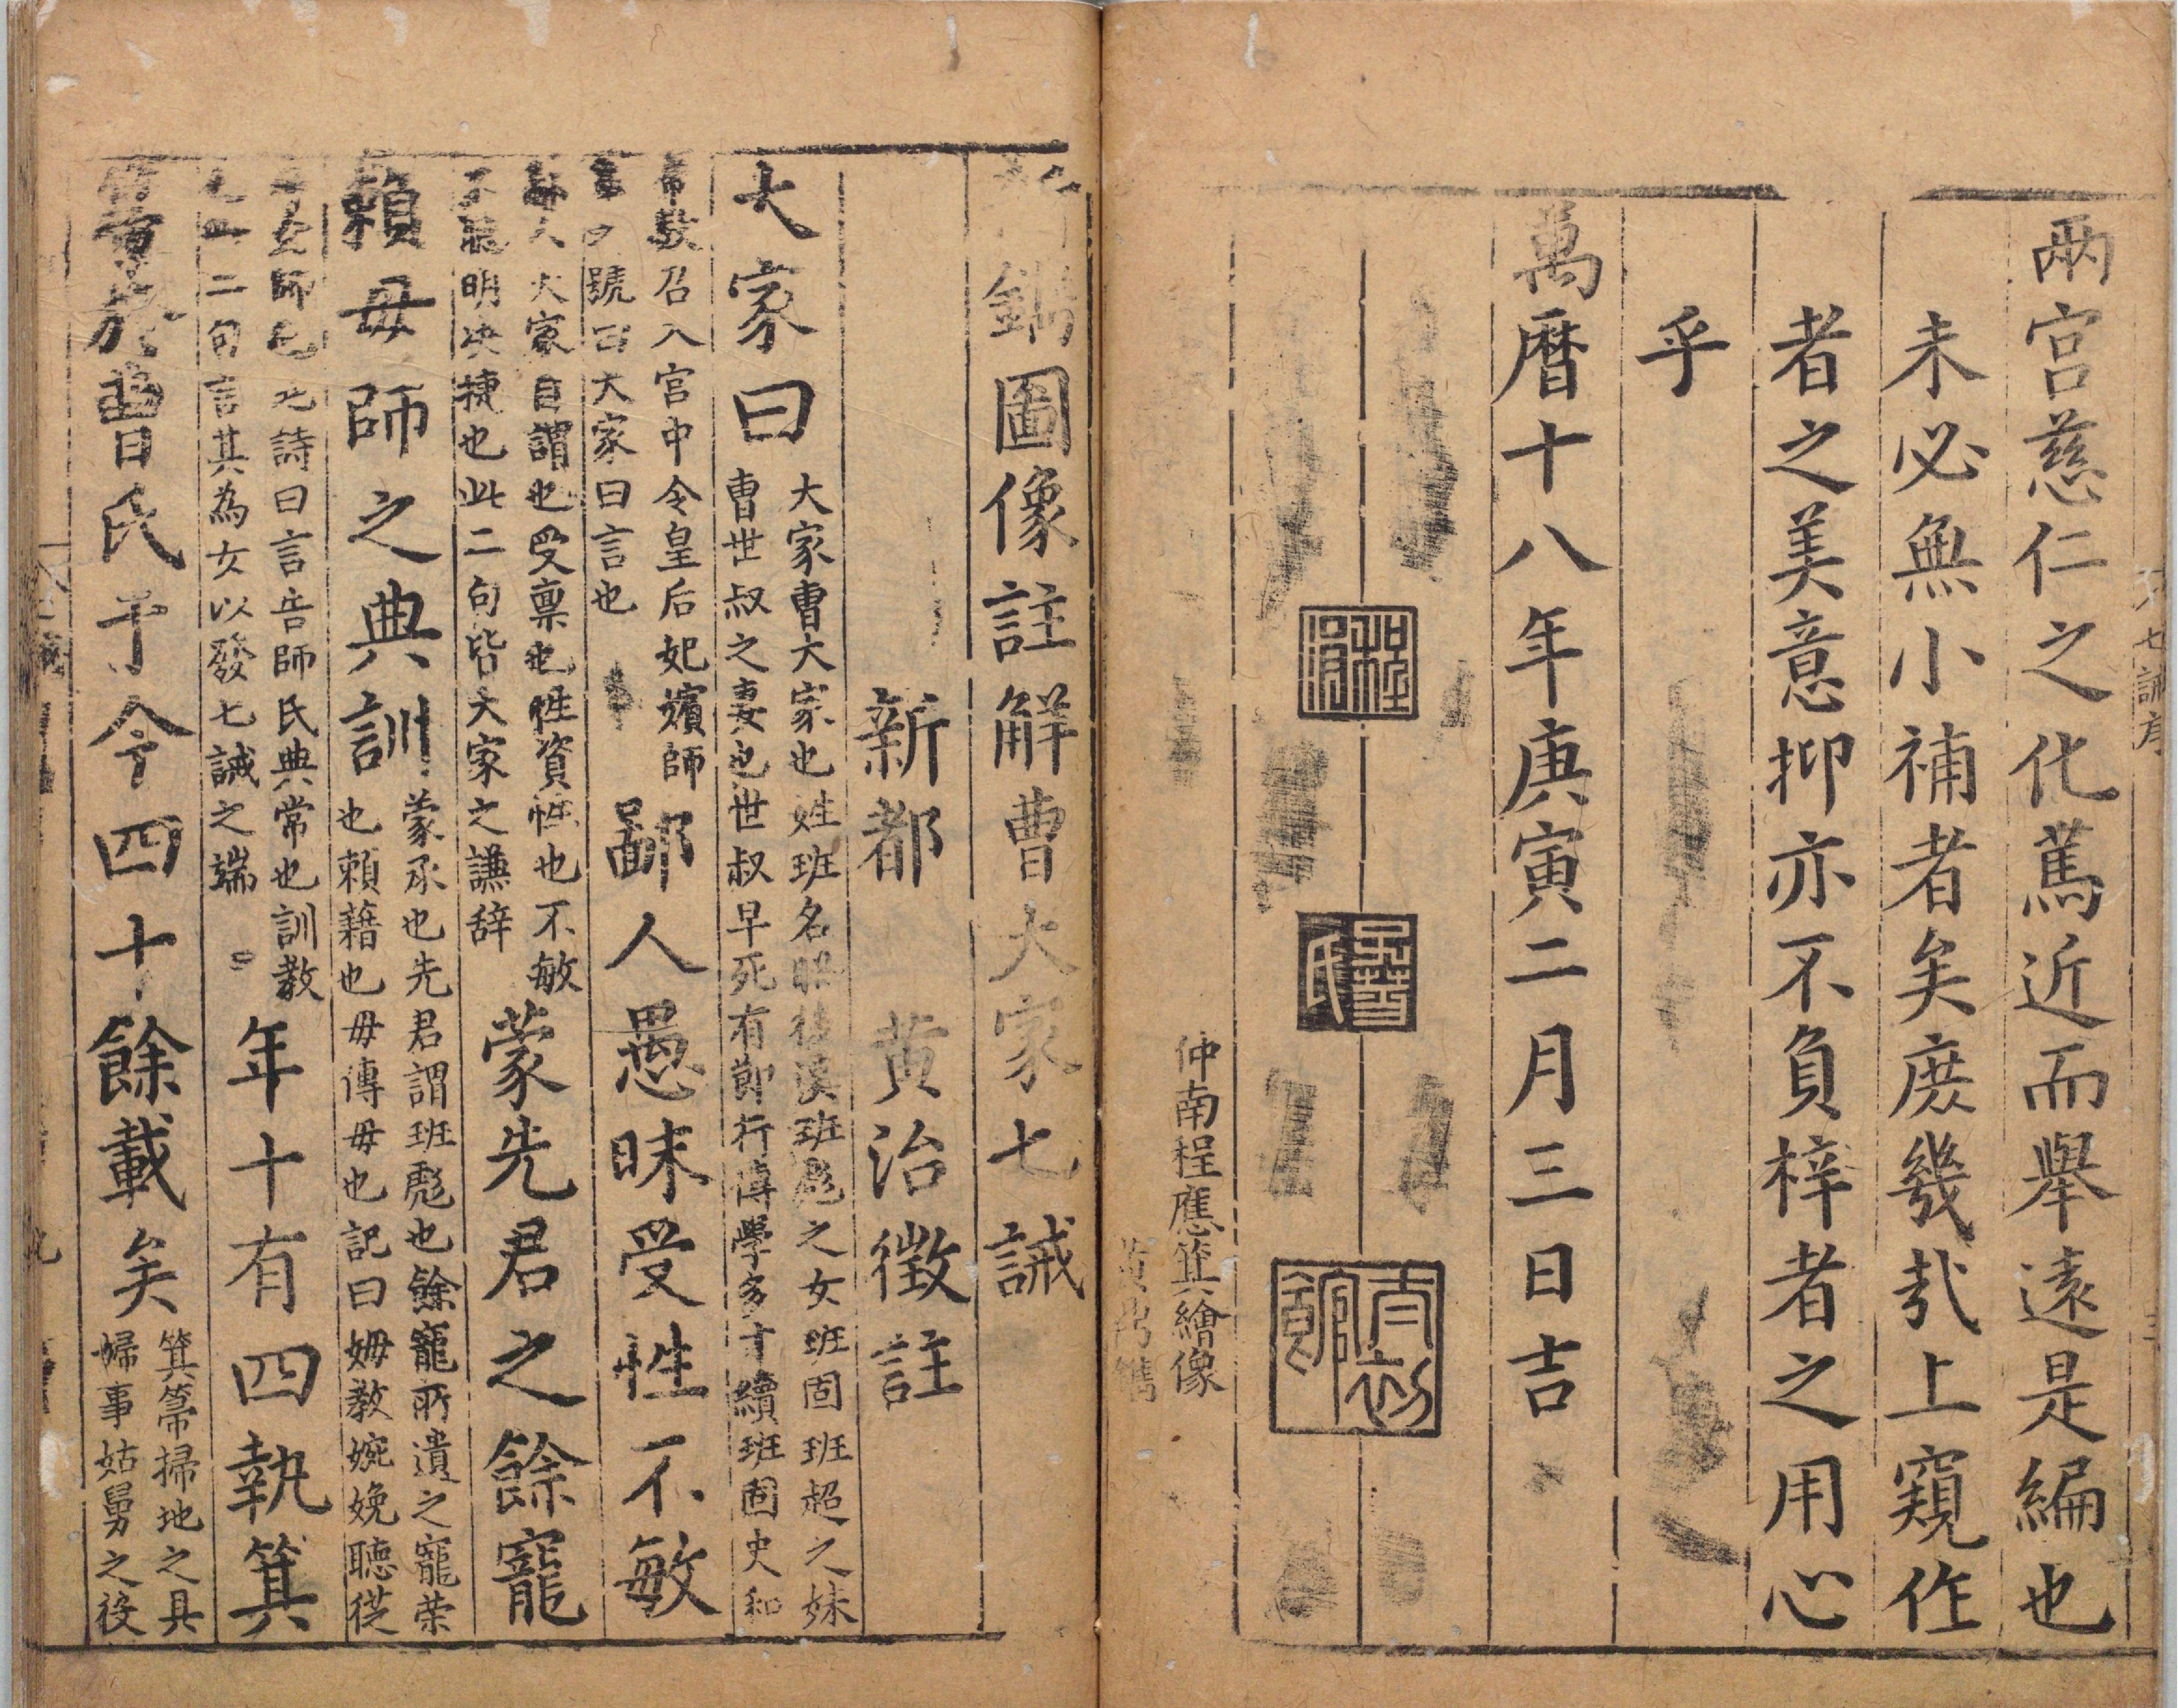 兩宮慈仁之化蔿近而舉遠是編也
未必無小補者矣庶幾哉上窺作
者之美意抑亦不負梓者之用心
乎
萬曆十八年庚寅二月三日吉
程涓
吳葺氏
青初館
仲南程應箕繪像
鐫圖像註解曹大家七誡
新都 黄治徵註
大家曰
大家曹大家也姓班名昭後漢班彪之女班固班超之妹
曹世叔之妻也世叔早死有節行博學多才續班固史和
帝数召入宮中令皇后妃嬪師
事之號曰大家曰言也
鄙人愚昧受性不敏
鄙人大家自謂也受禀也性資性也不敏
不聰明決捷也此二句皆大家之謙辞
蒙先君之餘寵
賴母師之典訓
蒙承也先君謂班彪也餘寵所遺之寵荣
也賴藉也毋傳毋也記曰姆教婉娩聴従
女師也詩曰言告師氏典常也訓教
也此二句言其為女以發七誡之端
年十有四執箕
箒於曹氏于今四十餘載矣
箕箒掃地之具
婦事姑舅之役